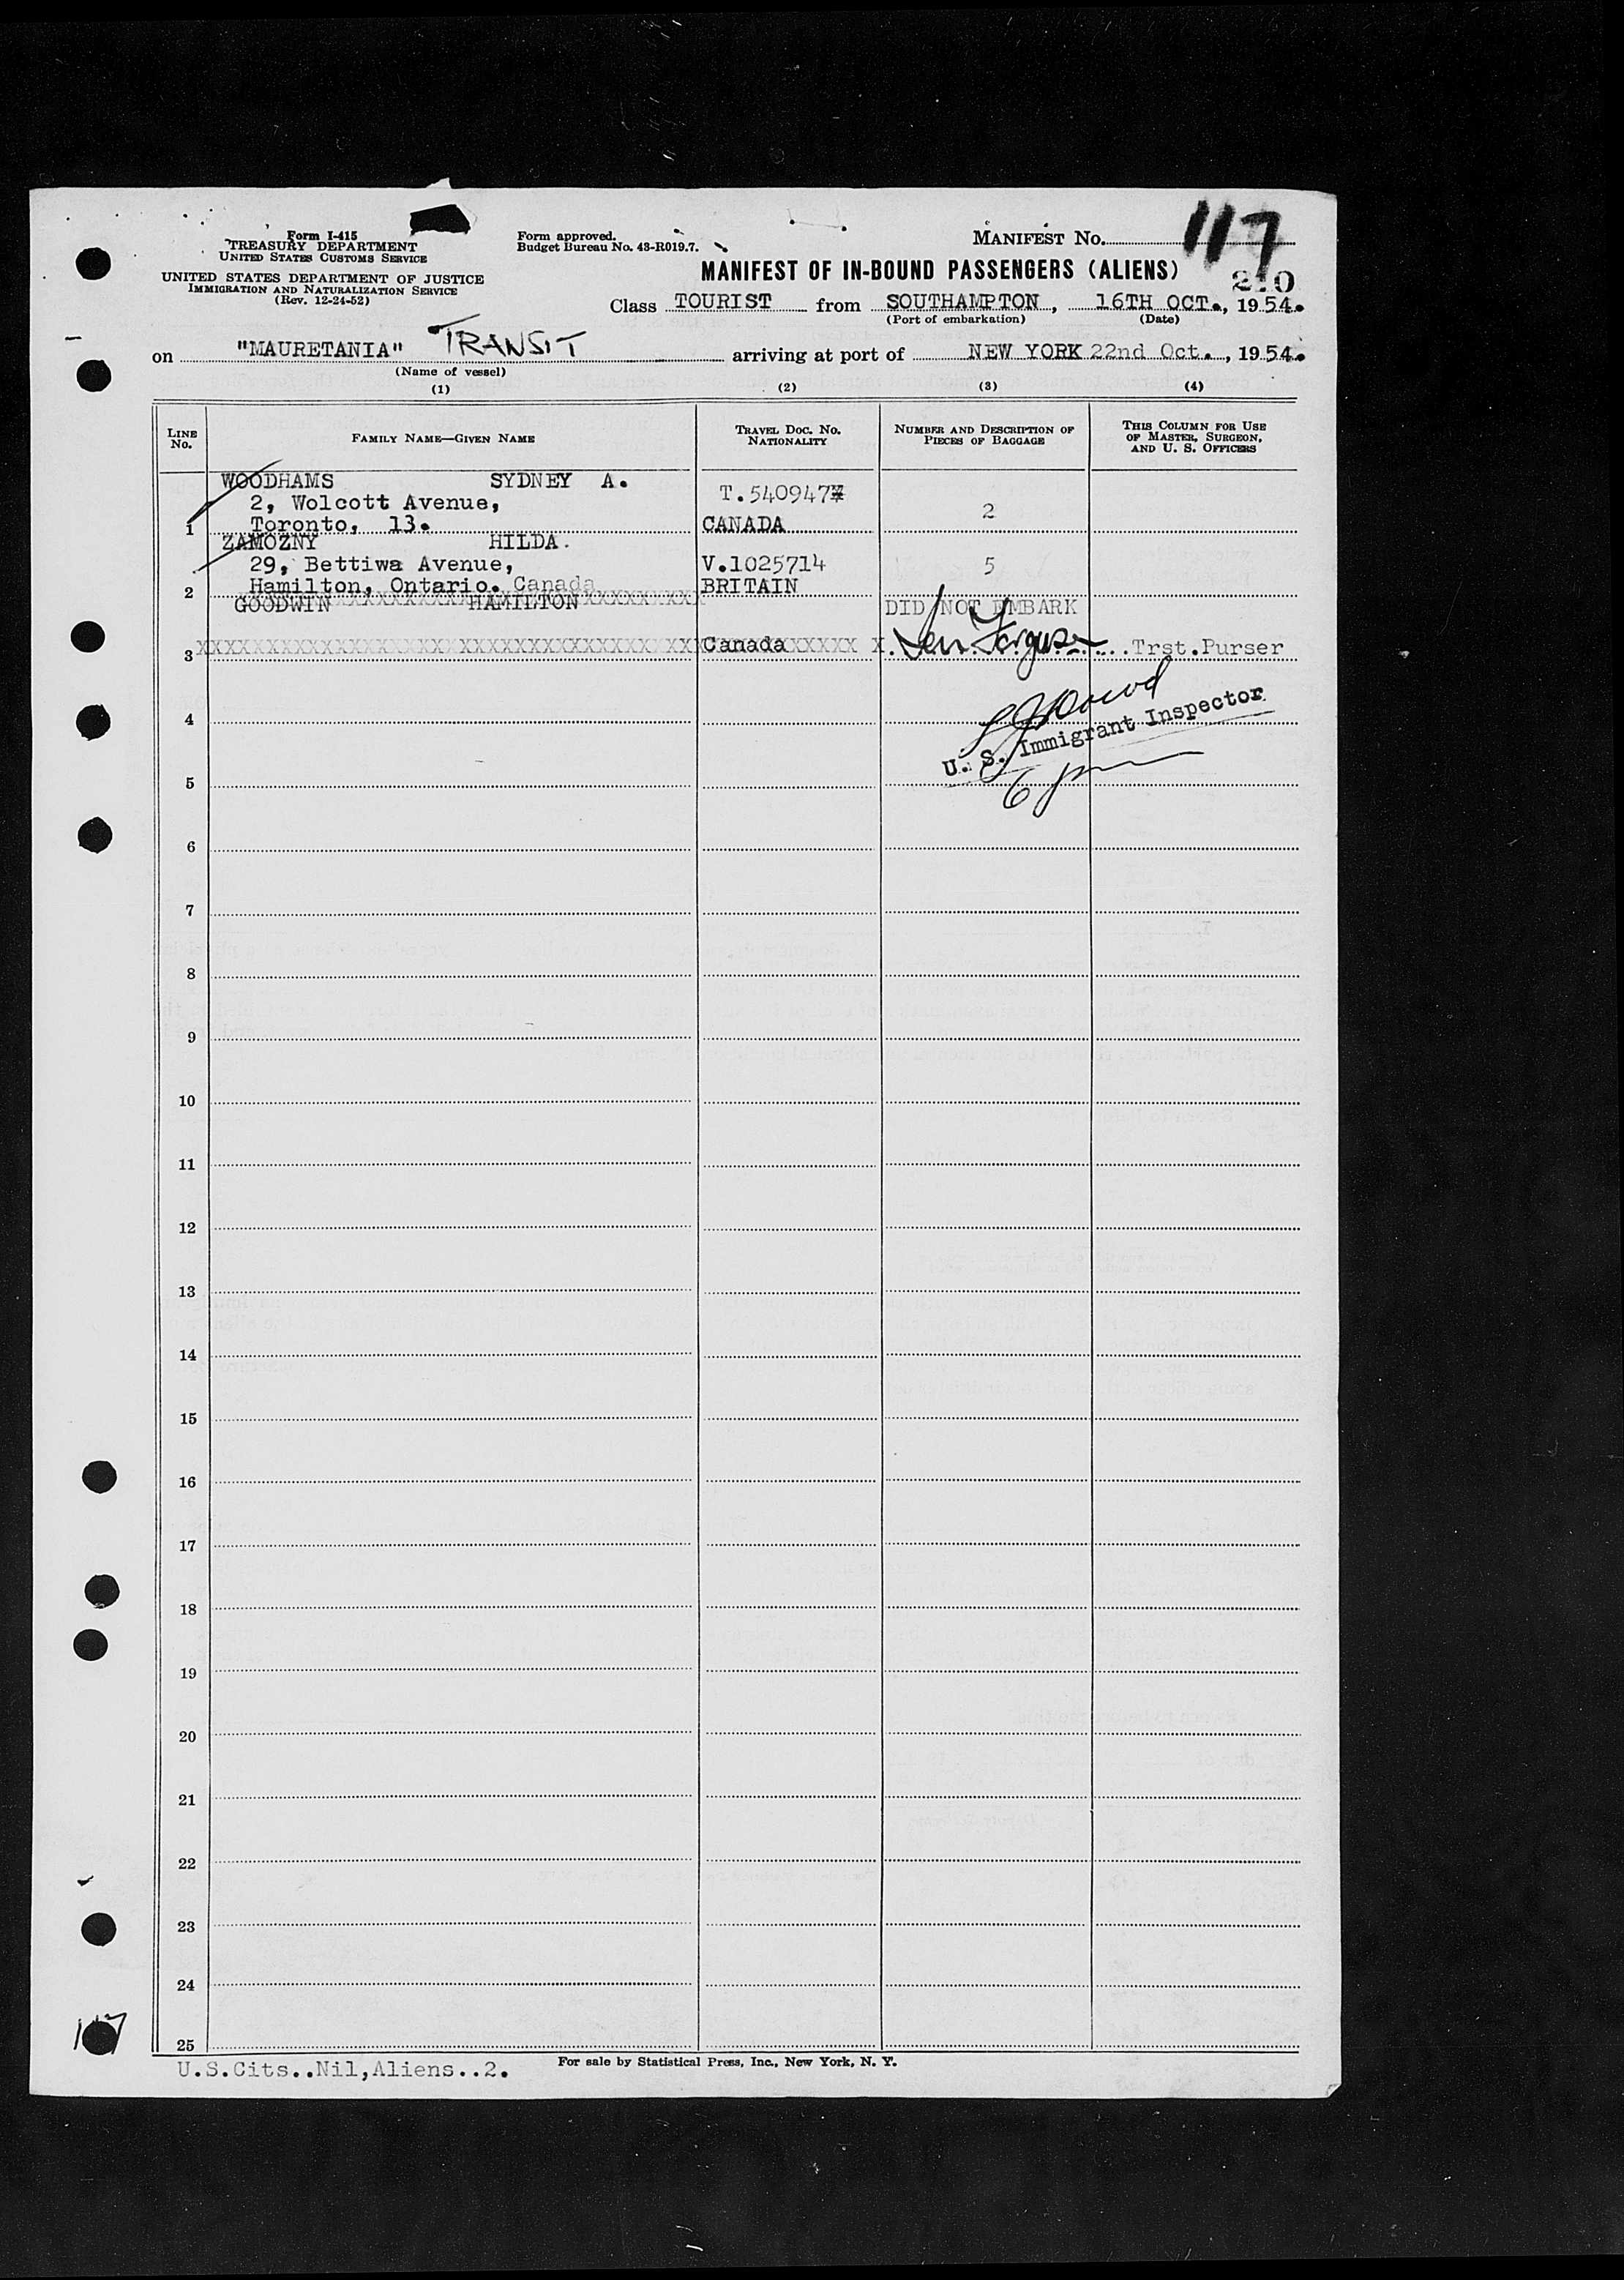 Form I-415
TREASURY DEPARTMENT
UNITED STATES CUSTOMS SERVICE
UNITED STATES DEPARTMENT OF JUSTICE
IMMIGRATION AND NATURALIZATION SERVICE
(Rev. 12-24-52)
Form approved.
Budget Bureau No. 43-R019.7.
MANIFEST No. 117
MANIFEST OF IN-BOUND PASSENGERS (ALIENS)
Class TOURIST from SOUTHAMPTON, 16TH OCT., 1954.
(Port of embarkation) (Date)
on "MAURETANIA" TRANSIT arriving at port of NEW YORK 22nd Oct., 1954.
(Name of vessel)
(1) (2) (3) (4)
LINE No. FAMILY NAME—GIVEN NAME TRAVEL DOC. NO. NATIONALITY NUMBER AND DESCRIPTION OF PIECES OF BAGGAGE THIS COLUMN FOR USE OF MASTER, SURGEON, AND U. S. OFFICERS
WOODHAMS SYDNEY A.
2, Wolcott Avenue, T.540947 2
1 Toronto, 13. CANADA
ZAMOZNY HILDA.
29, Bettiwa Avenue, V.1025714 5
2 Hamilton, Ontario. Canada BRITAIN
GOODWIN HAMILTON DID NOT EMBARK
3 Canada Trst.Purser
4
U. S. Immigrant Inspector
5
6
7
8
9
10
11
12
13
14
15
16
17
18
19
20
21
22
23
24
25
117
U.S.Cits..Nil,Aliens..2.
For sale by Statistical Press, Inc., New York, N. Y.